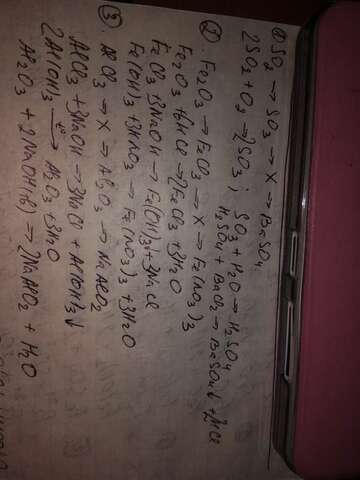 ① SO2 → SO3 → X → BaSO4
2SO2 + O2 → 2SO3; SO3 + H2O → H2SO4
H2SO4 + BaCl2 → BaSO4↓ + 2HCl
②. Fe2O3 → FeCl3 → X → Fe(NO3)3
Fe2O3 + 6HCl → 2FeCl3 + 3H2O
FeCl3 + 3NaOH → Fe(OH)3↓ + 3NaCl
Fe(OH)3 + 3HNO3 → Fe(NO3)3 + 3H2O
③. AlCl3 → X → Al2O3 → NaAlO2
AlCl3 + 3NaOH → 3NaCl + Al(OH)3↓
2Al(OH)3 t° → Al2O3 + 3H2O
Al2O3 + 2NaOH(тв) → 2NaAlO2 + H2O